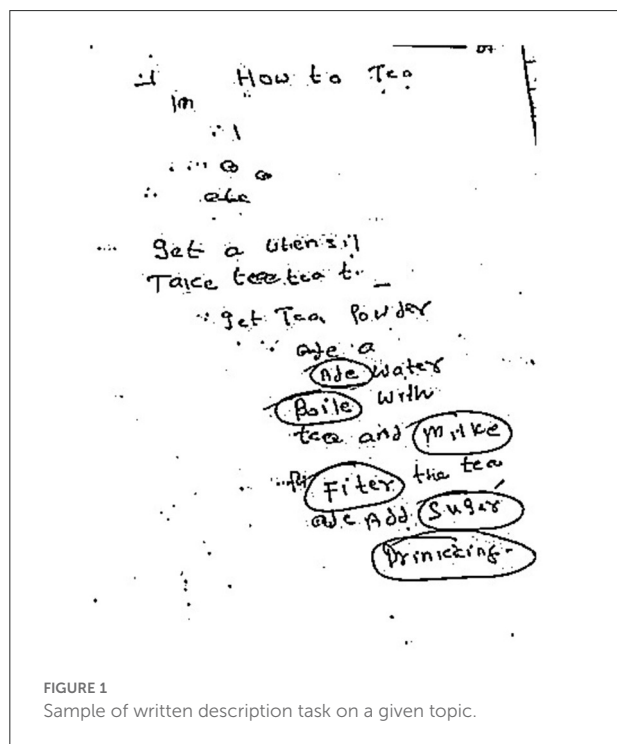 How to Tea
Im
get a utensil
Take teetea t.
get Tea Powder
ade a
Ade water
Boile with
tee and milke
Fiter the tea
ade Add Suger
Drinicking.
FIGURE 1
Sample of written description task on a given topic.